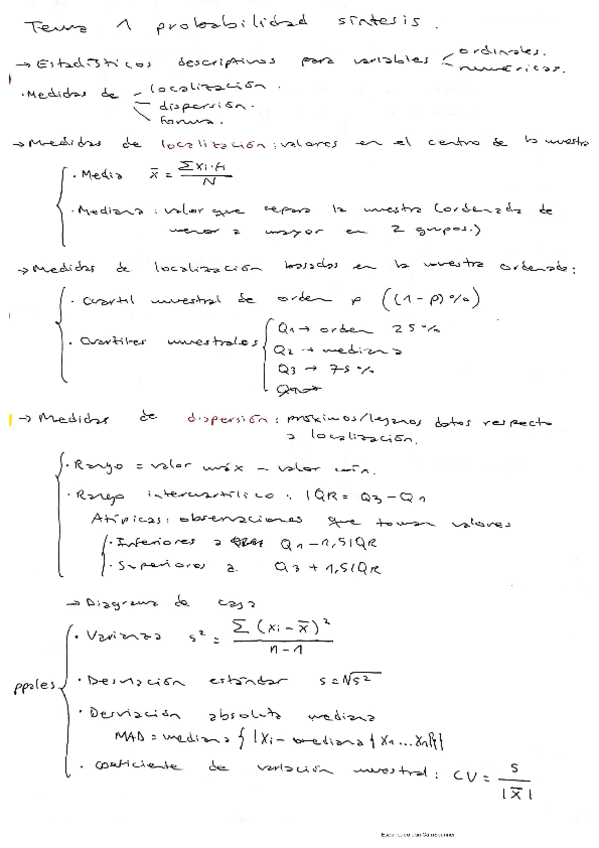 Tema 1 probabilidad síntesis.
→ Estadísticos descriptivos para variables ordinales.
numéricas.
· Medidas de localización.
dispersión.
forma.
→ Medidas de localización: valores en el centro de la muestra
· Media x̄ = Σxi·fi / N
· Mediana: valor que separa la muestra (ordenada de
menor a mayor en 2 grupos.)
→ Medidas de localización basadas en la muestra ordenada:
· Cuartil muestral de orden p ((1-p)%)
· Cuartiles muestrales Q1 → orden 25%
Q2 → mediana
Q3 → 75%
→ Medidas de dispersión: próximos/lejanos datos respecto
a localización.
· Rango = valor máx - valor mín.
· Rango intercuartílico: IQR = Q3 - Q1
Atípicas: observaciones que toman valores
· Inferiores a Q1 - 1,5IQR
· Superiores a Q3 + 1,5IQR
→ Diagrama de caja
· Varianza s² = Σ(xi - x̄)² / n-1
ppales
· Desviación estándar s = √s²
· Desviación absoluta mediana
MAD = mediana {|xi - mediana {x1...xn}|}
· coeficiente de variación muestral: CV = s / |x̄|
Escaneado con CamScanner